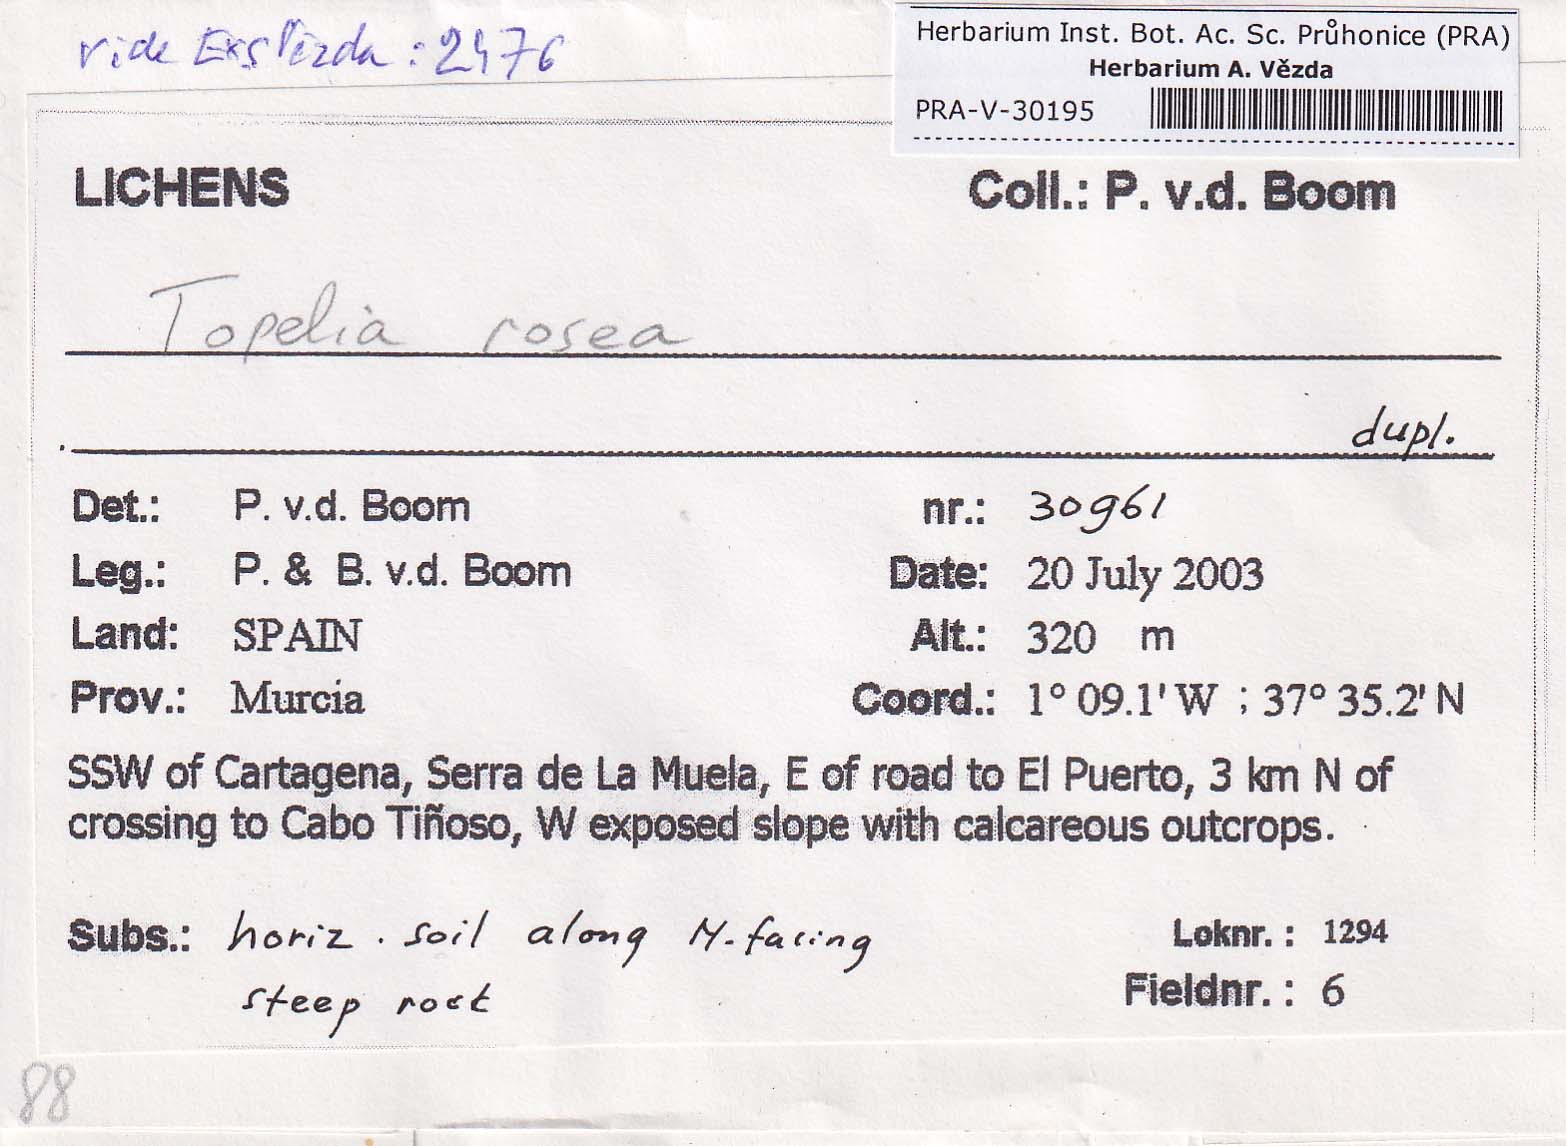 vide Exs Vězda : 2476
Herbarium Inst. Bot. Ac. Sc. Průhonice (PRA)
Herbarium A. Vězda
PRA-V-30195
LICHENS Coll.: P. v.d. Boom
Topelia rosea
dupl.
Det.: P. v.d. Boom nr.: 30961
Leg.: P. & B. v.d. Boom Date: 20 July 2003
Land: SPAIN Alt.: 320 m
Prov.: Murcia Coord.: 1° 09.1' W ; 37° 35.2' N
SSW of Cartagena, Serra de La Muela, E of road to El Puerto, 3 km N of
crossing to Cabo Tiñoso, W exposed slope with calcareous outcrops.
Subs.: horiz. soil along N-facing Loknr. : 1294
steep rock Fieldnr. : 6
88